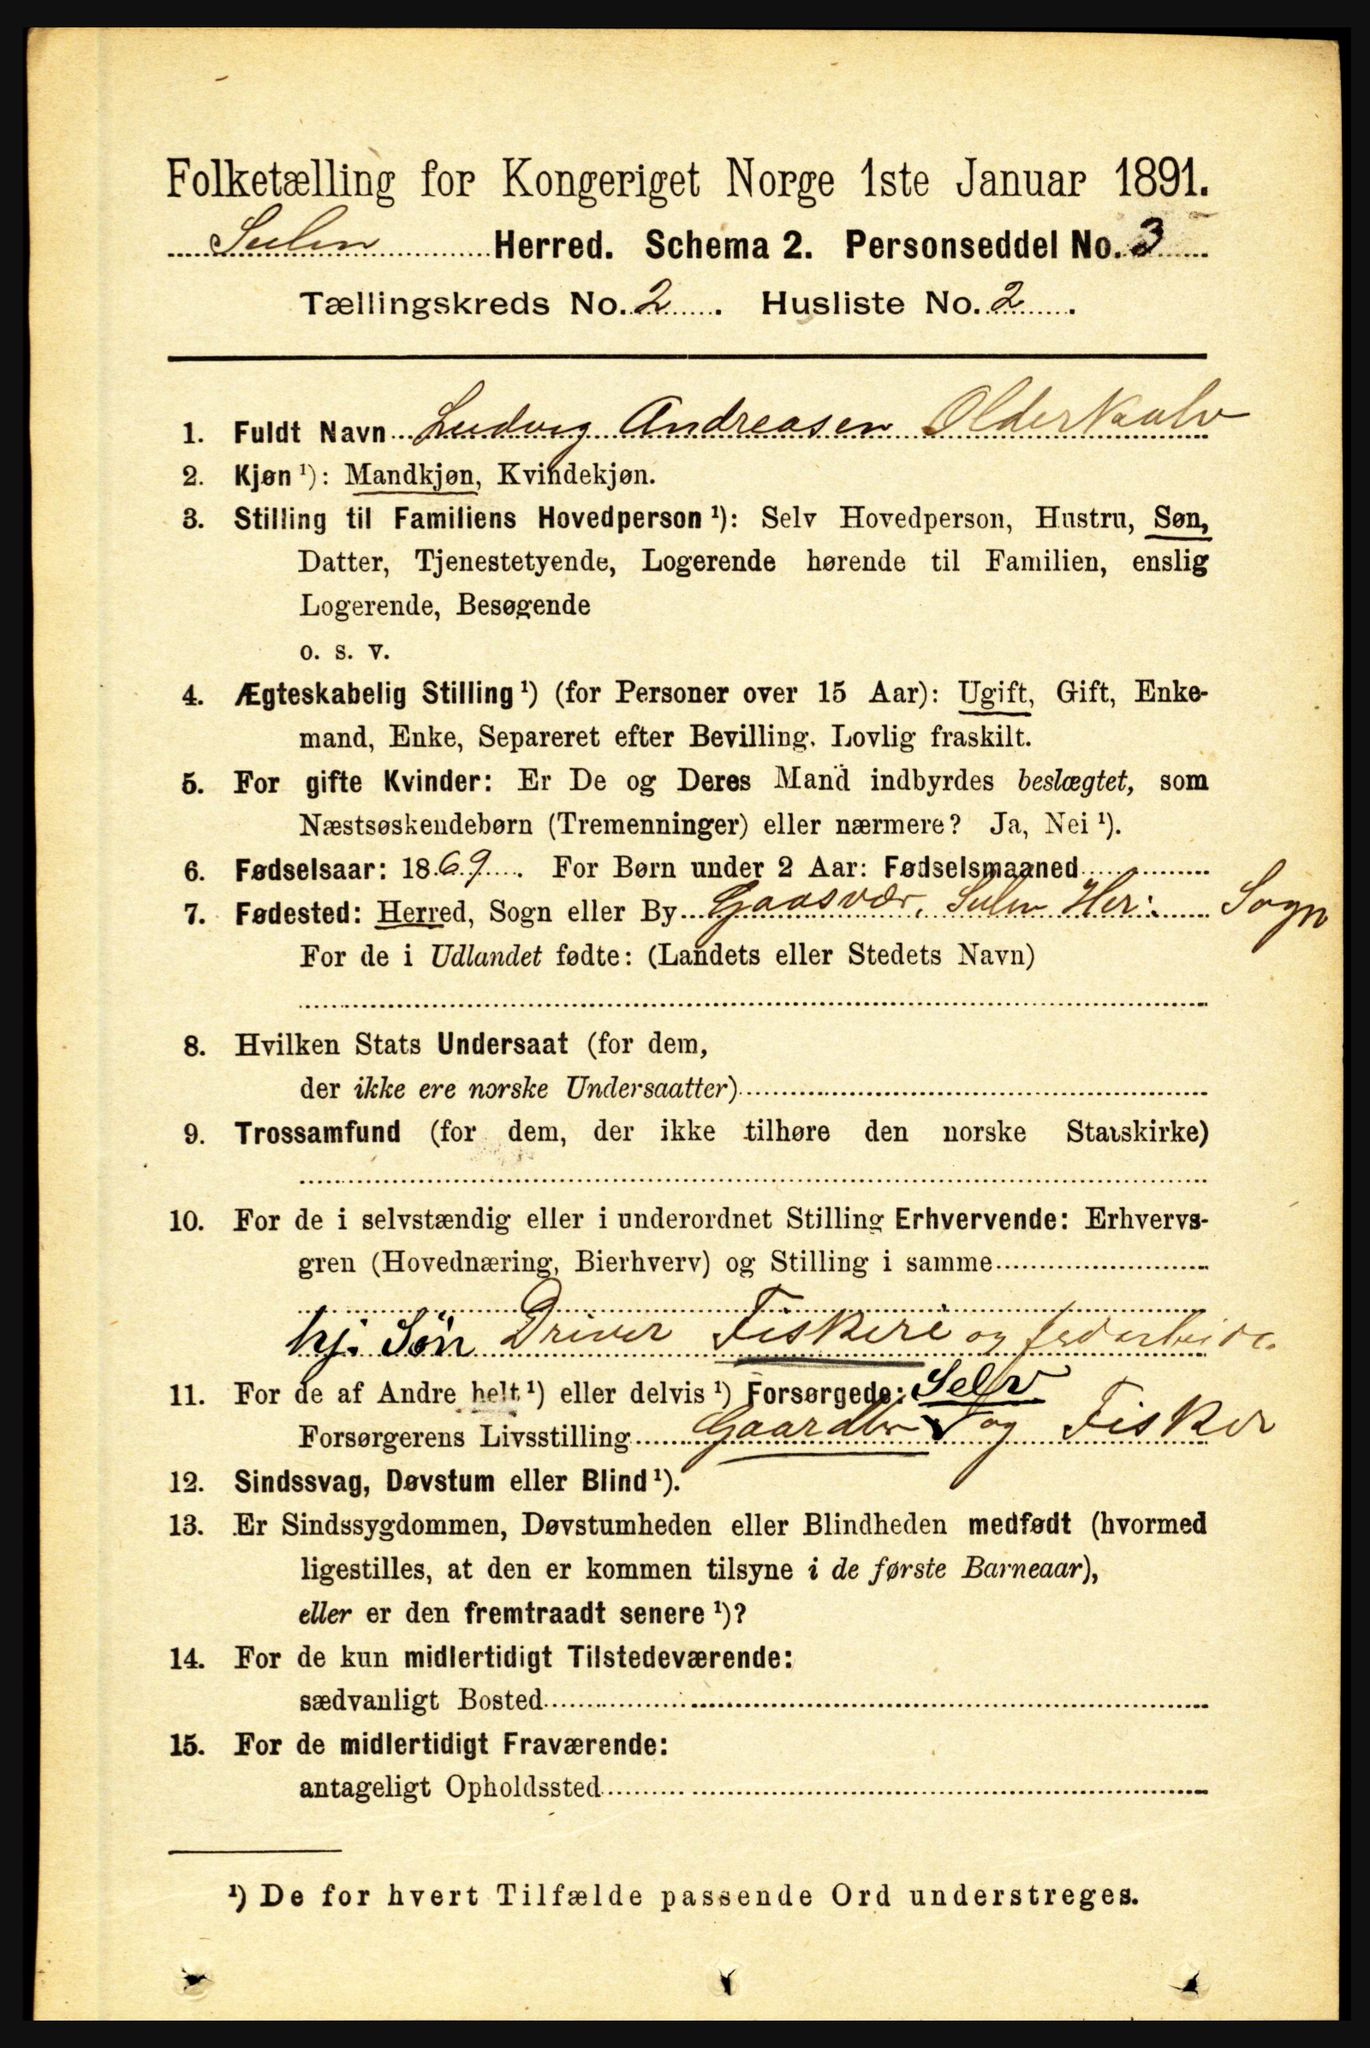 Folketælling for Kongeriget Norge 1ste Januar 1891.
Sulen Herred. Schema 2. Personseddel No. 3
Tællingskreds No. 2. Husliste No. 2.
1. Fuldt Navn Ludvig Andreasen Olderkalv
2. Kjøn ¹): Mandkjøn, Kvindekjøn.
3. Stilling til Familiens Hovedperson ¹): Selv Hovedperson, Hustru, Søn,
Datter, Tjenestetyende, Logerende hørende til Familien, enslig
Logerende, Besøgende
o. s. v.
4. Ægteskabelig Stilling ¹) (for Personer over 15 Aar): Ugift, Gift, Enke-
mand, Enke, Separeret efter Bevilling. Lovlig fraskilt.
5. For gifte Kvinder: Er De og Deres Mand indbyrdes beslægtet, som
Næstsøskendebørn (Tremenninger) eller nærmere? Ja, Nei ¹).
6. Fødselsaar: 1869. For Børn under 2 Aar: Fødselsmaaned
7. Fødested: Herred, Sogn eller By Gaasvær, Sulen Her: Sogn
For de i Udlandet fødte: (Landets eller Stedets Navn)
8. Hvilken Stats Undersaat (for dem,
der ikke ere norske Undersaatter)
9. Trossamfund (for dem, der ikke tilhøre den norske Statskirke)
10. For de i selvstændig eller i underordnet Stilling Erhvervende: Erhvervs-
gren (Hovednæring, Bierhverv) og Stilling i samme
hj. Søn Driver Fiskeri og jordarbeide
11. For de af Andre helt ¹) eller delvis ¹) Forsørgede: Selv
Forsørgerens Livsstilling Gaardbr og Fisker
12. Sindssvag, Døvstum eller Blind ¹).
13. Er Sindssygdommen, Døvstumheden eller Blindheden medfødt (hvormed
ligestilles, at den er kommen tilsyne i de første Barneaar),
eller er den fremtraadt senere ¹)?
14. For de kun midlertidigt Tilstedeværende:
sædvanligt Bosted
15. For de midlertidigt Fraværende:
antageligt Opholdssted
¹) De for hvert Tilfælde passende Ord understreges.